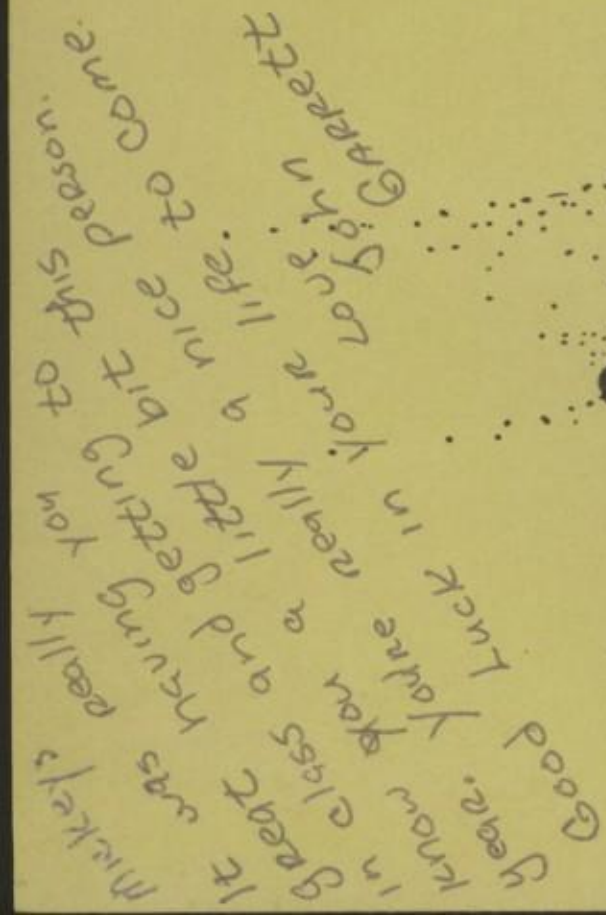 Mickey's
It was really
great having you
in class and getting to
know you a little bit this
year. You're really a nice person.
Good Luck in your life to come.
Love
John
GARRETT